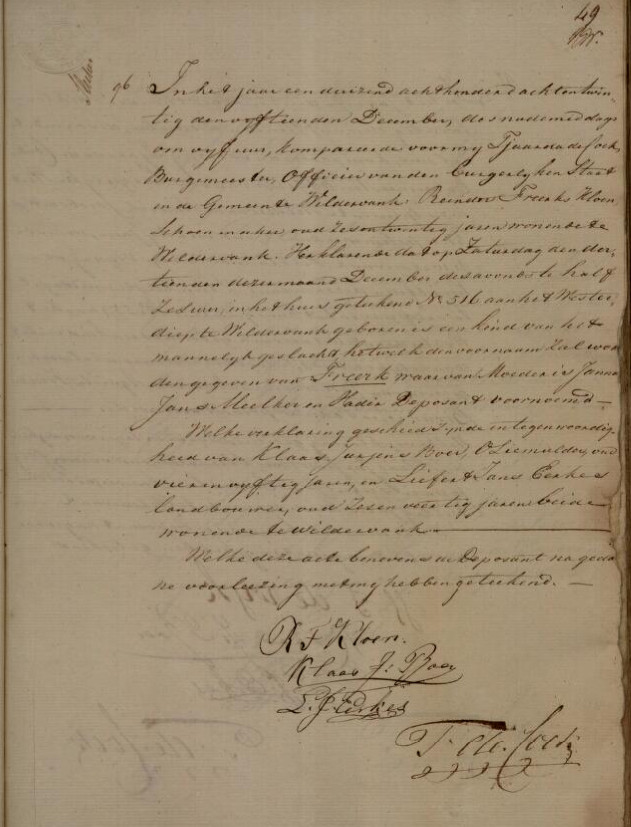 49
96 In het jaar een duizend acht honderd acht en twin
tig den vyftienden December, des nademiddags
om vyf uur, kompareerde voor my Tjaarda de Cock
Burgemeester, Officier van den burgerlyken Staat
in de Gemeente Wildervank. Reinder Freerks Kloen,
Schoenmaker, oud zes en twintig jaren wonende te
Wildervank. Verklarende dat op Zaturdag den der
tienden dezer maand December des avonds te half
Zes uur, in het huis getekend No. 516 aan het Wester
diep te Wildervank geboren is een kind van het
mannelyk geslacht, hetwelk den voornaam zal wor
den gegeven van Freerk waar van Moeder is Janna
Jans Meelker en Vader Deposant voornoemd —
Welke verklaring geschied is in de tegenwoordig
heid van Klaas Jurjens Boer, Oliemulder, oud
vier en vyftig Jaren, en Liefert Jans Eerkes
landbouwer, oud Zes en veertig jaren beide
wonende te Wildervank —
Welke deze acte benevens de Deposant na geda
ne voorlezing met my hebben getekend. —
R F Kloen.
Klaas J: Boer
L. J. Eerkes
T. de Cock